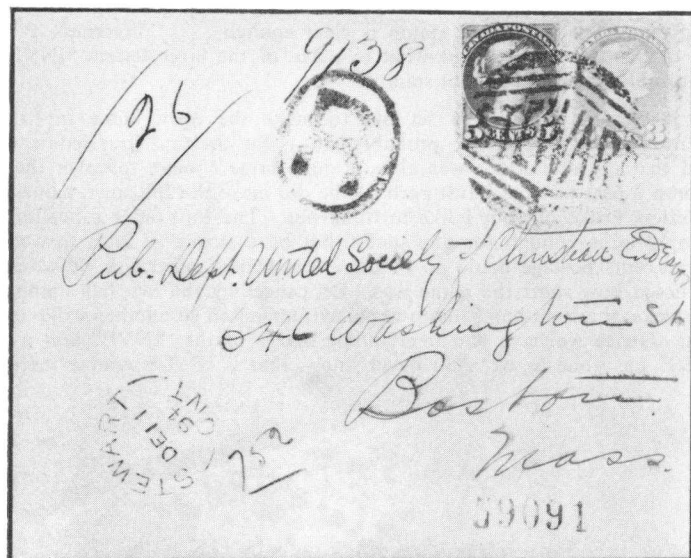 CANADA POSTAGE
5 CENTS 5
3
9138
126
R
Pub. Dept. United Society of Christian Endeav
646 Washington St
Boston
Mass.
STEWART
DE 11
94
ONT
252
59091